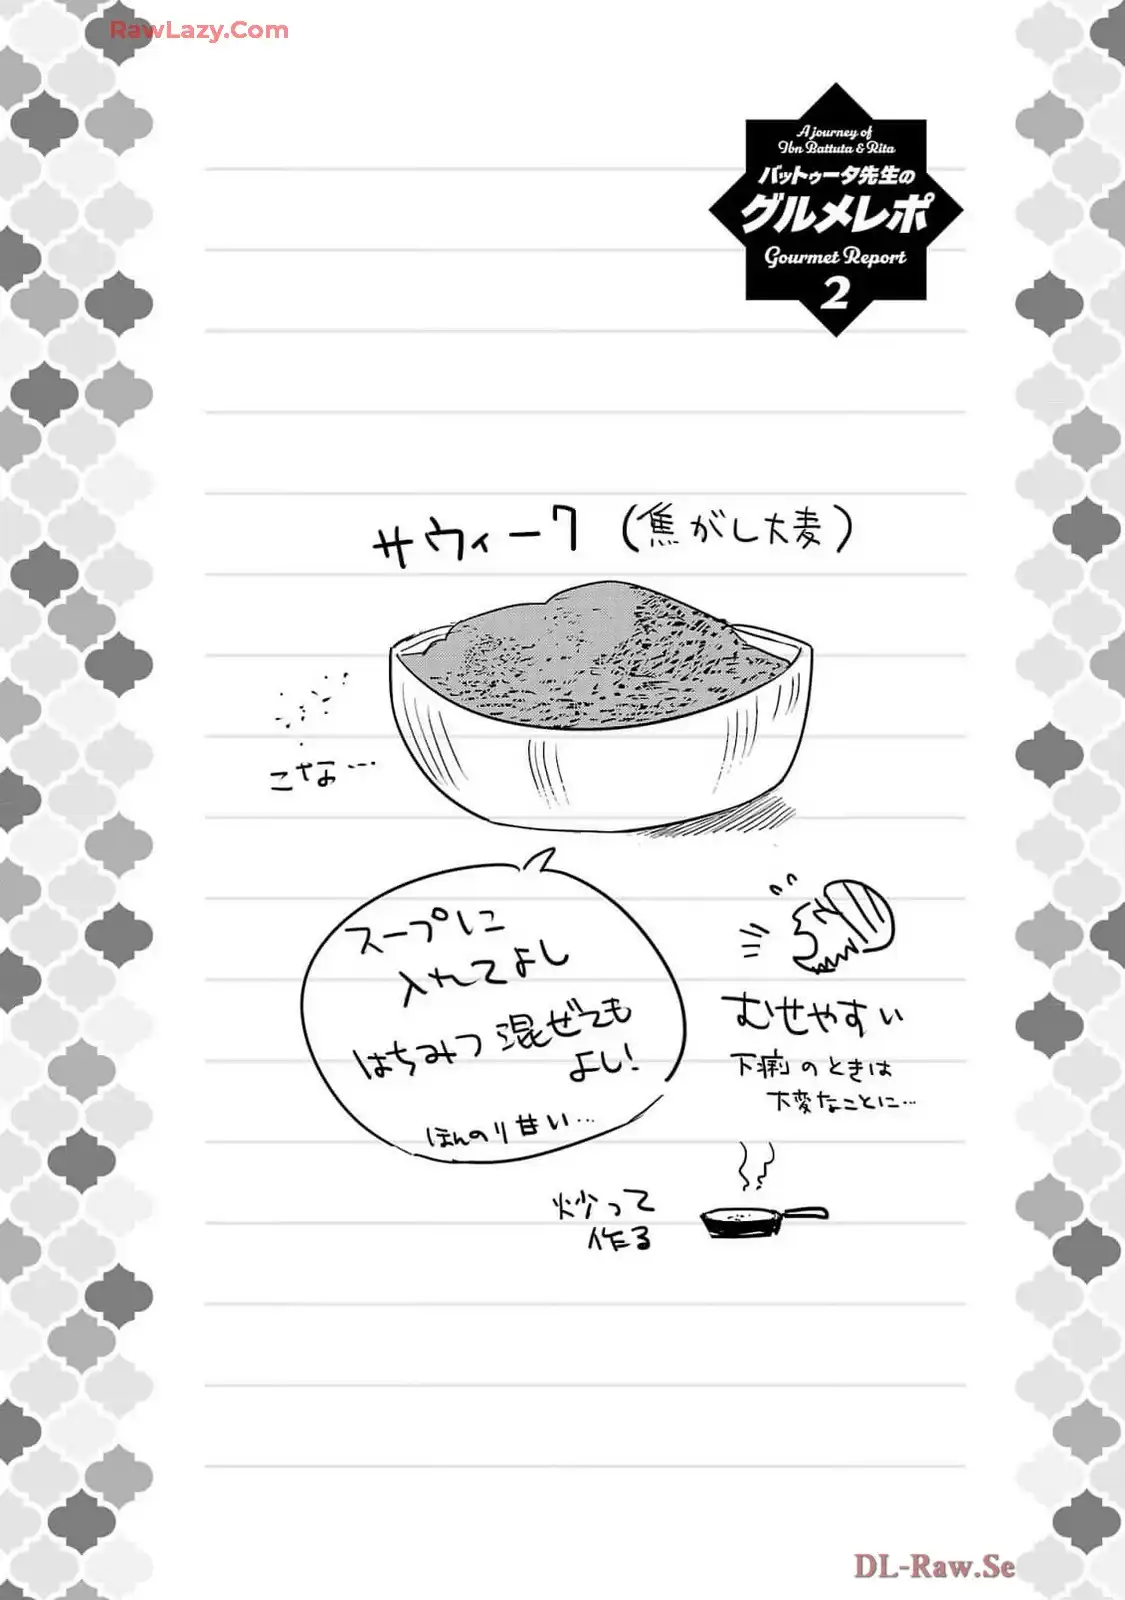 RawLazy.Com
A journey of
Ibn Battuta & Rita
バットゥータ先生の
グルメレポ
Gourmet Report
2
サウィーク（焦がし大麦）
こな…
スープに
入れてよし
はちみつ混ぜても
よし!
ほんのり甘い…
むせやすい
下痢のときは
大変なことに…
炒って
作る
DL-Raw.Se